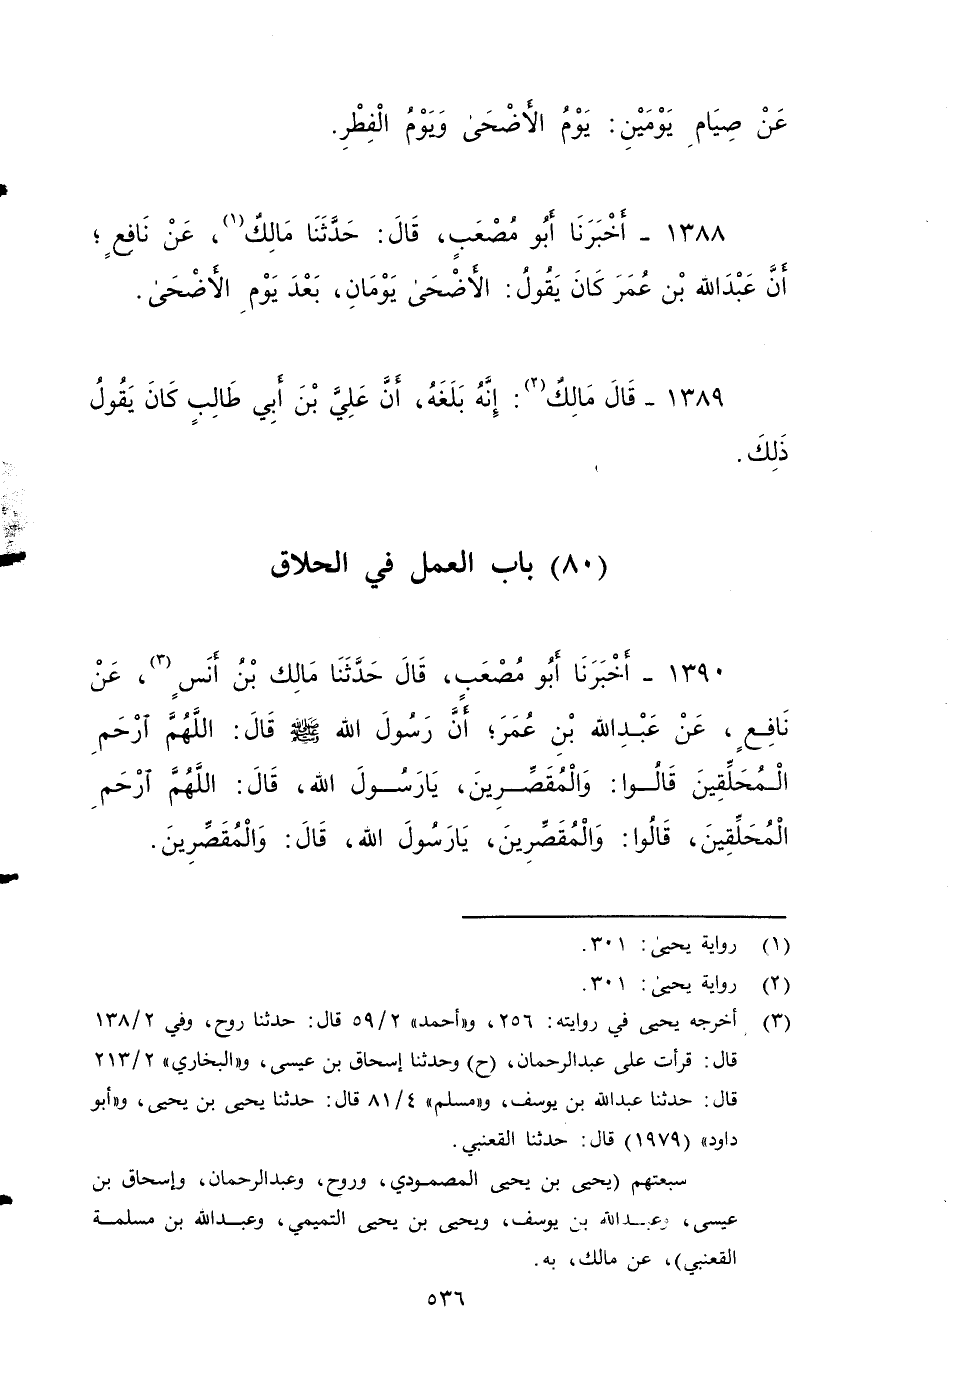 عَنْ صِيَامِ يَوْمَيْنِ: يَوْمُ الْأَضْحَىٰ وَيَوْمُ الْفِطْرِ.
١٣٨٨ - أَخْبَرَنَا أَبُو مُصْعَبٍ، قَالَ: حَدَّثَنَا مَالِكٌ(١)، عَنْ نَافِعٍ؛
أَنَّ عَبْدَالله بْنَ عُمَرَ كَانَ يَقُولُ: الْأَضْحَىٰ يَوْمَانِ، بَعْدَ يَوْمِ الْأَضْحَىٰ.
١٣٨٩ - قَالَ مَالِكٌ(٢): إِنَّهُ بَلَغَهُ، أَنَّ عَلِيَّ بْنَ أَبِي طَالِبٍ كَانَ يَقُولُ
ذَلِكَ.
(٨٠) باب العمل في الحلاق
١٣٩٠ - أَخْبَرَنَا أَبُو مُصْعَبٍ، قَالَ حَدَّثَنَا مَالِك بْنُ أَنَسٍ(٣)، عَنْ
نَافِعٍ، عَنْ عَبْدِالله بْنِ عُمَرَ؛ أَنَّ رَسُولَ الله ﷺ قَالَ: اللَّهُمَّ ٱرْحَمِ
الْمُحَلِّقِينَ قَالُوا: وَالْمُقَصِّرِينَ، يَارَسُولَ الله، قَالَ: اللَّهُمَّ ٱرْحَمِ
الْمُحَلِّقِينَ، قَالُوا: وَالْمُقَصِّرِينَ، يَارَسُولَ الله، قَالَ: وَالْمُقَصِّرِينَ.
(١) رواية يحيىٰ: ٣٠١.
(٢) رواية يحيىٰ: ٣٠١.
(٣) أخرجه يحيى في روايته: ٢٥٦، و«أحمد» ٥٩/٢ قال: حدثنا روح، وفي ١٣٨/٢
قال: قرأت على عبدالرحمان، (ح) وحدثنا إسحاق بن عيسى، و«البخاري» ٢١٣/٢
قال: حدثنا عبدالله بن يوسف، و«مسلم» ٨١/٤ قال: حدثنا يحيى بن يحيى، و«أبو
داود» (١٩٧٩) قال: حدثنا القعنبي.
سبعتهم (يحيى بن يحيى المصمودي، وروح، وعبدالرحمان، وإسحاق بن
عيسى، وعبدالله بن يوسف، ويحيى بن يحيى التميمي، وعبدالله بن مسلمة
القعنبي)، عن مالك، به.
٥٣٦